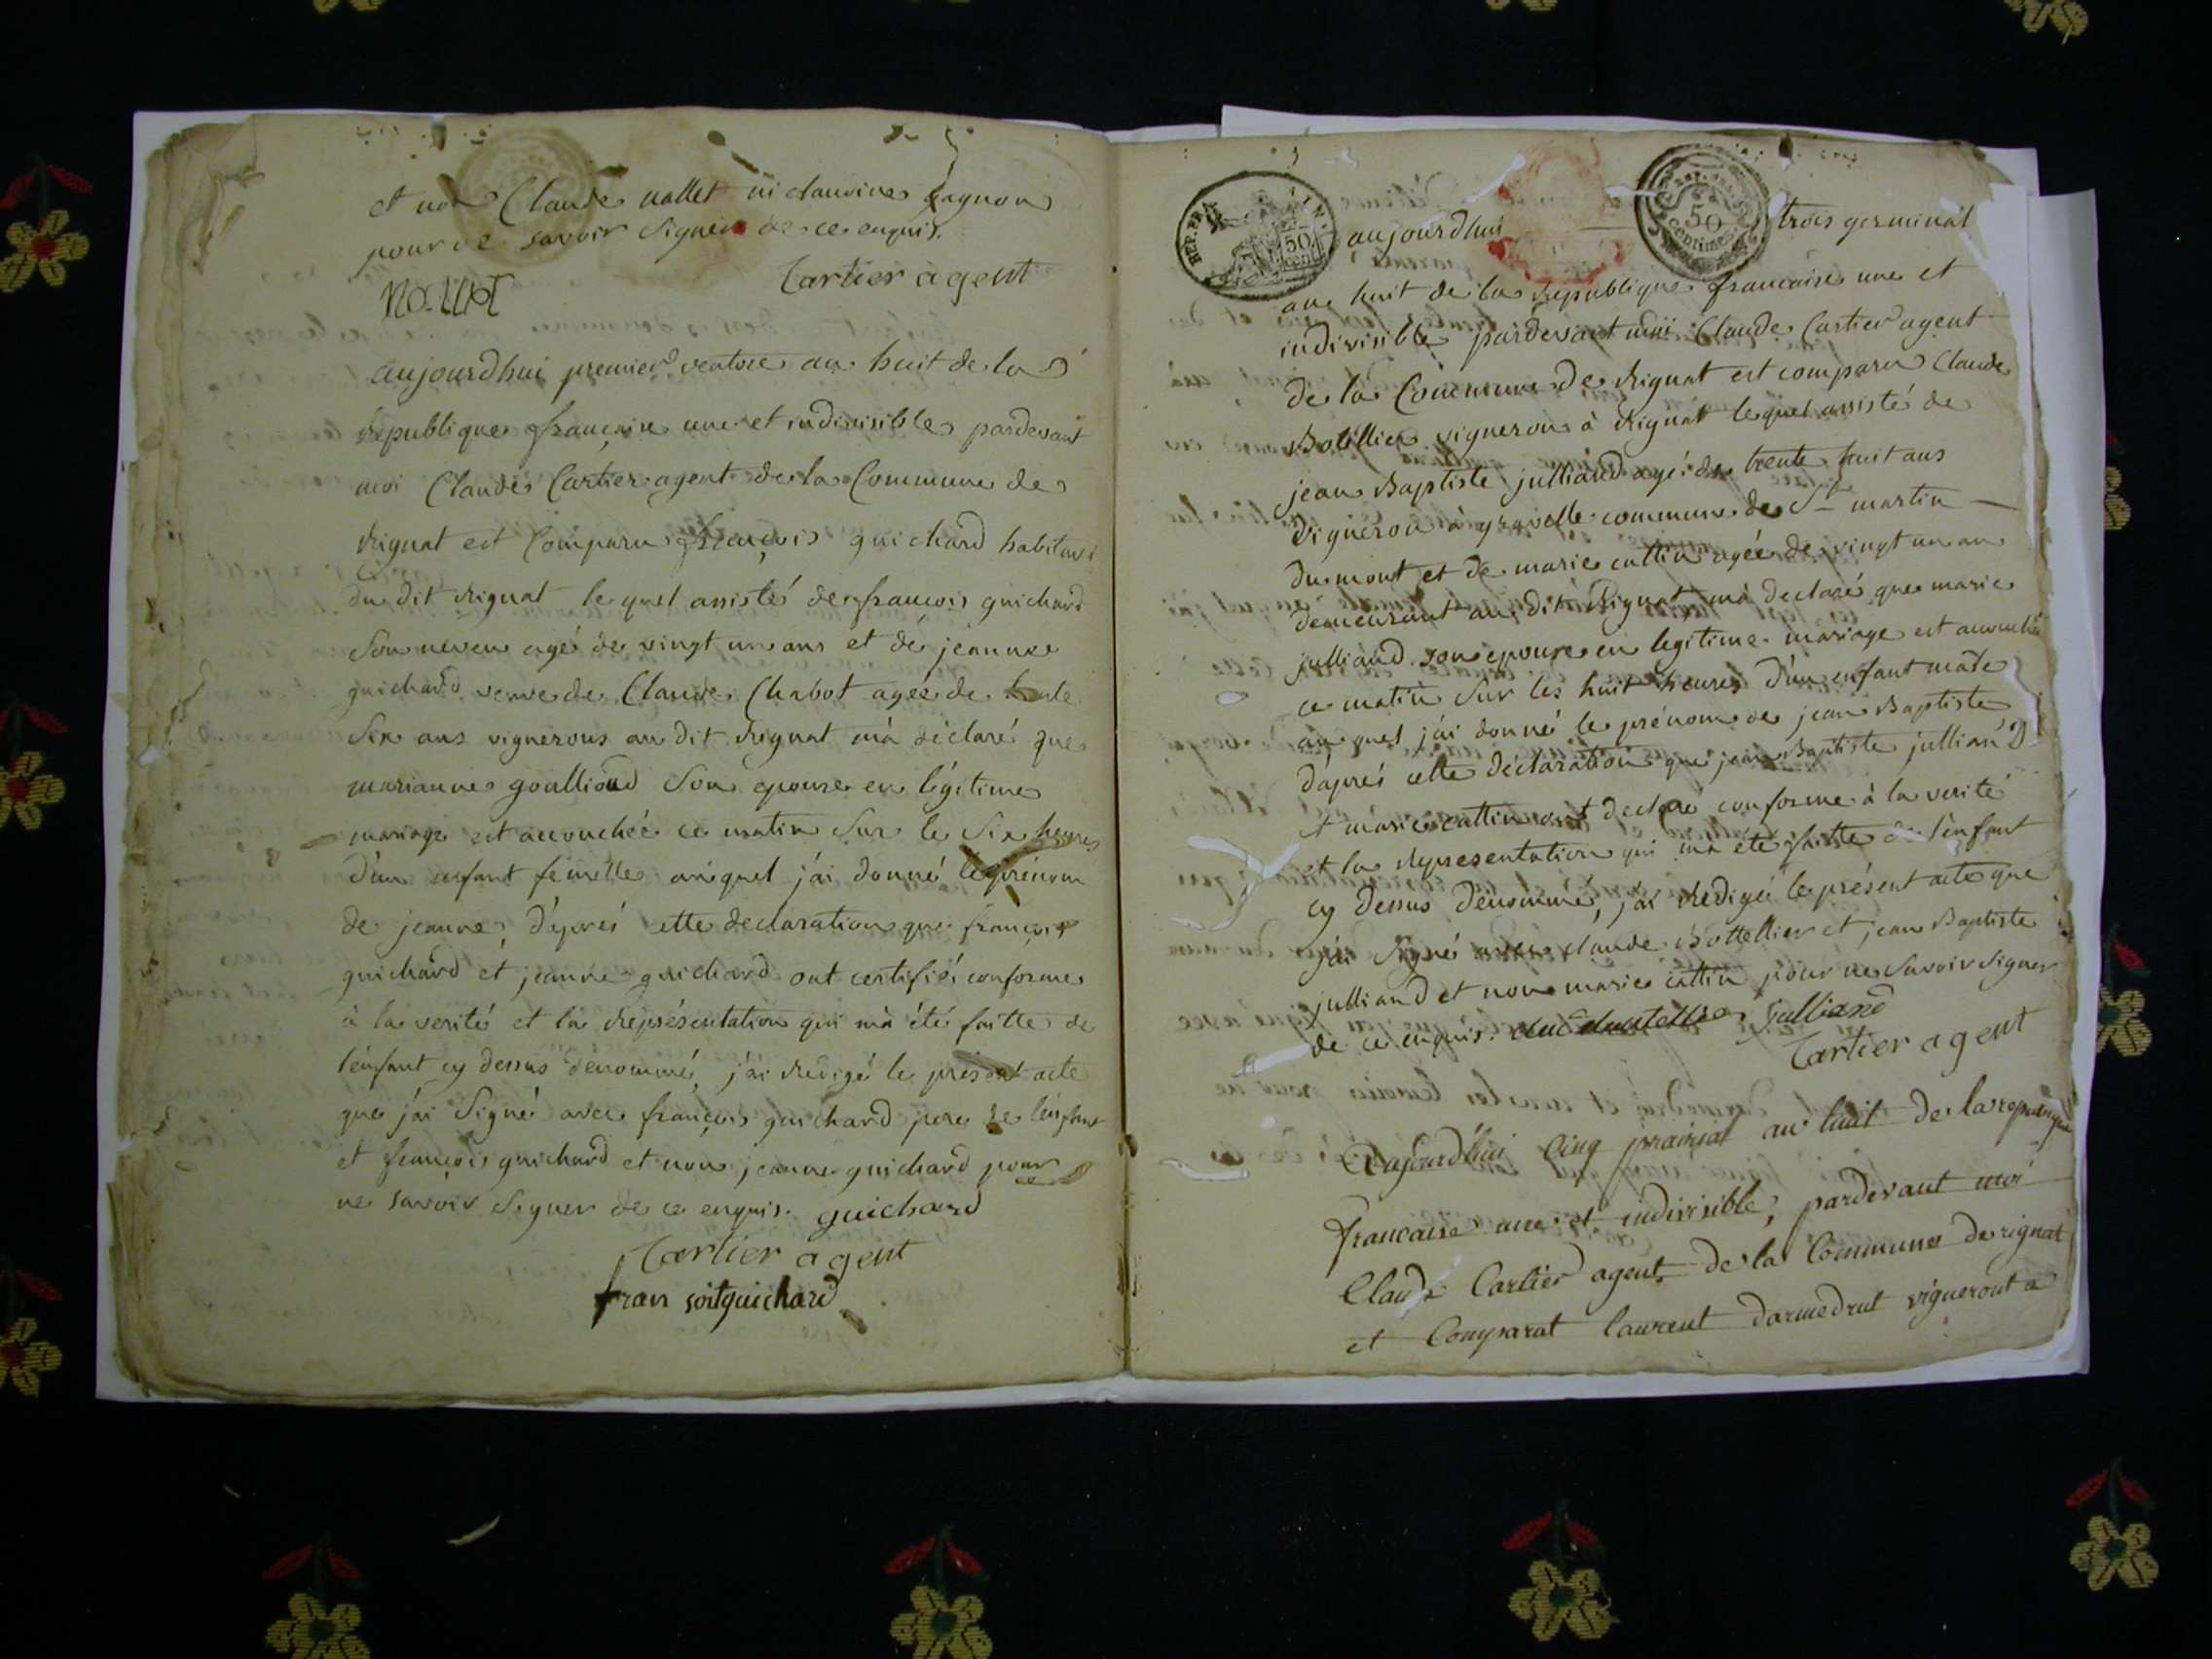 et non Claude nallet ni claudine gagnon
pour ne savoir Signer de ce enquis.
Cartier agent
nallet
aujourdhui premier ventose an huit de la
republique française une et indivisible pardevant
moi Claude Cartier agent de la Commune de
Rignat est Comparu françois guichard habitant
du dit Rignat le quel assisté de françois guichard
Son neveu agé de vingt un ans et de jeanne
guichard veuve de Claude Chabot agée de trente
Six ans vignerons au dit Rignat m'a déclaré que
marianne goulliond Son epouse en légitime
mariage est accouchée ce matin Sur le Six heures
d'un enfant femelle auquel j'ai donné le prénom
de jeanne, d'aprés cette declaration que françois
guichard et jeanne guichard ont certifiés conforme
à la verité et la Représentation qui m'a été faitte de
l'enfant cy dessus dénommé, j'ai Redigé le présent acte
que j'ai Signé avec françois guichard pere de l'enfant
et françois guichard et non jeanne guichard pour
ne savoir Signer de ce enquis. guichard
Cartier agent
fran soit guichard
REP. FRA.
50 cent
50 centimes
aujourdhui trois germinal
an huit de la Republique francaise une et
indivisible pardevant moi Claude Cartier agent
de la Commune de Rignat est comparu Claude
Botellier vigneron à Rignat lequel assisté de
jean Baptiste julliand agé de trente huit ans
vigneron à gravelle commune de St martin
du mont et de marie cattin agée de vingt un an
demeurant au dit Rignat m'a declaré que marie
julliand son epouse en legitime mariage est accouchée
ce matin Sur les huit heures d'un enfant mâle
au quel j'ai donné le prénom de jean Baptiste
d'aprés cette déclaration que jean Baptiste julliand
et marie cattin ont declaré conforme à la verité
et la Representation qui m'a été faitte de l'enfant
cy dessus dénommé, j'ai Redigé le présent acte que
j'ai Signé avec claude Bottellier et jean Baptiste
julliand et non marie cattin pour ne Savoir Signer
de ce enquis. Julliand
Cartier agent
Aujourd'hui Cinq prairial an huit de la republique
francaise une et indivisible, pardevant moi
Claude Cartier agent de la Commune de rignat
et Comparut laurent darmedrut vigneront a